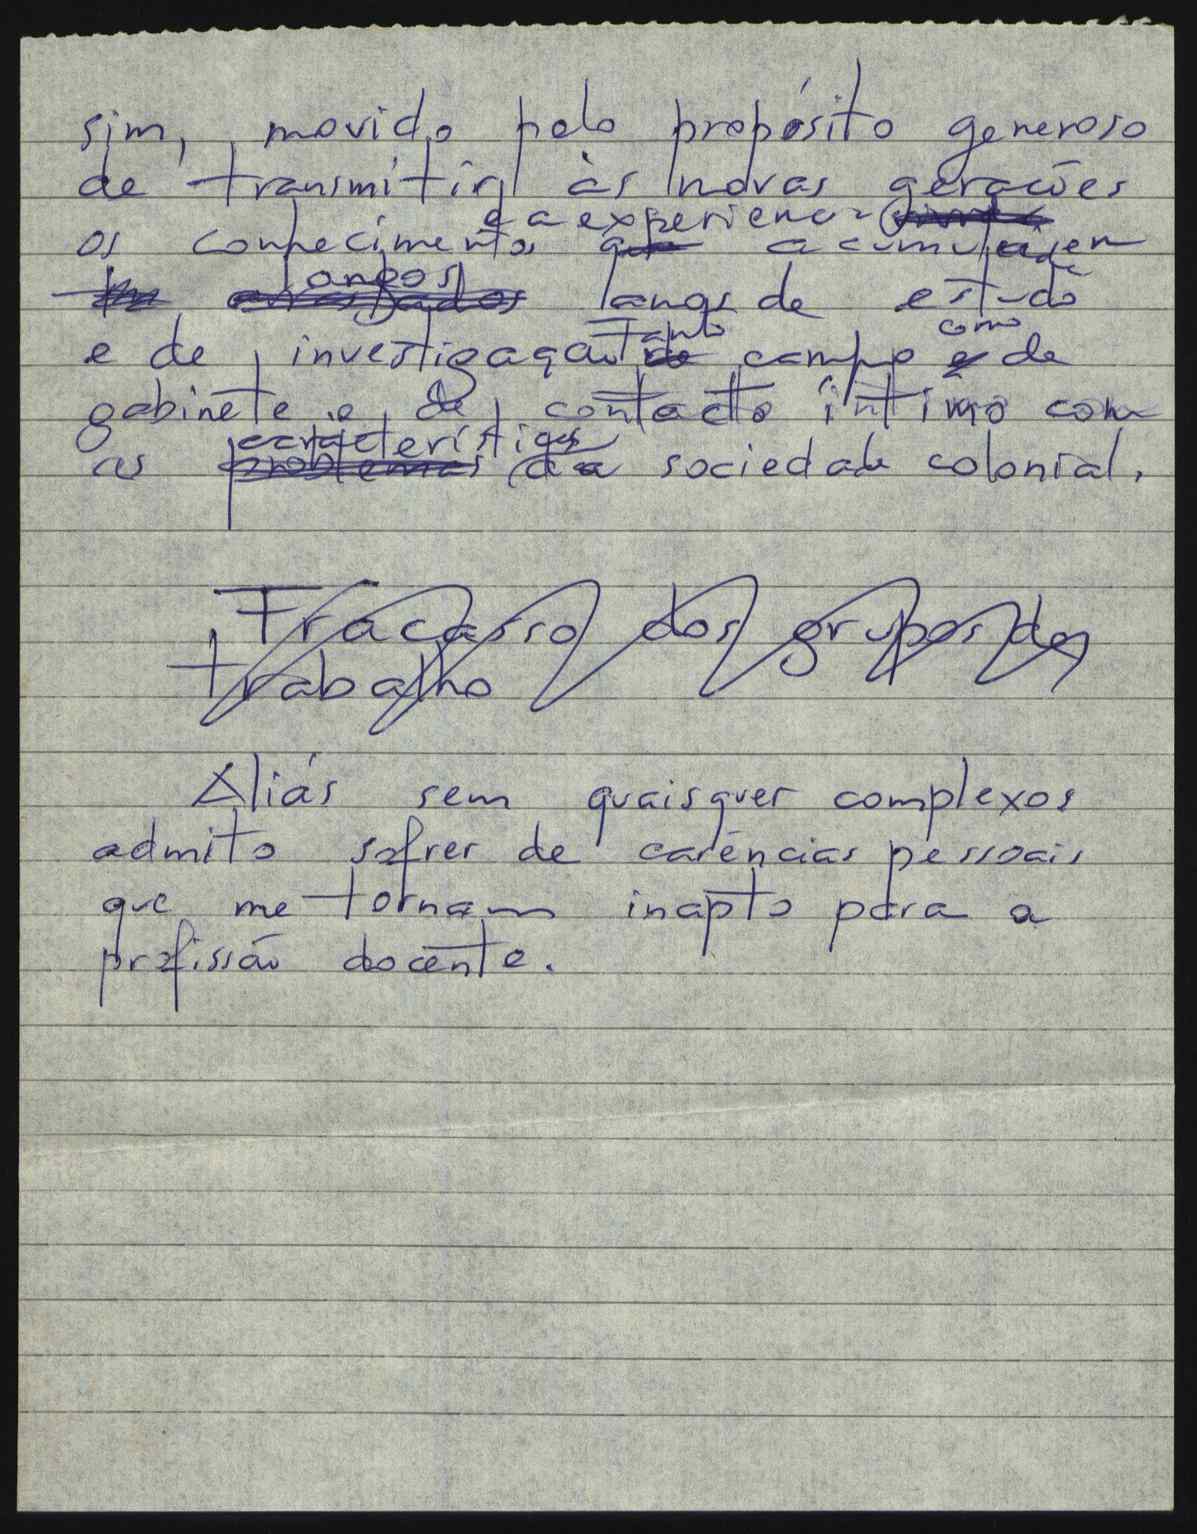 sim, movido pelo propósito generoso
de transmitir às novas gerações
e a experiencia
os conhecimentos que acumulei em
longos
anos de estudo
tanto como
e de investigação de campo e de
gabinete e de contacto íntimo com
características
as problemas da sociedade colonial.
Fracasso dos grupos de
trabalho
Aliás sem quaisquer complexos
admito sofrer de carências pessoais
que me tornam inapto para a
profissão docente.